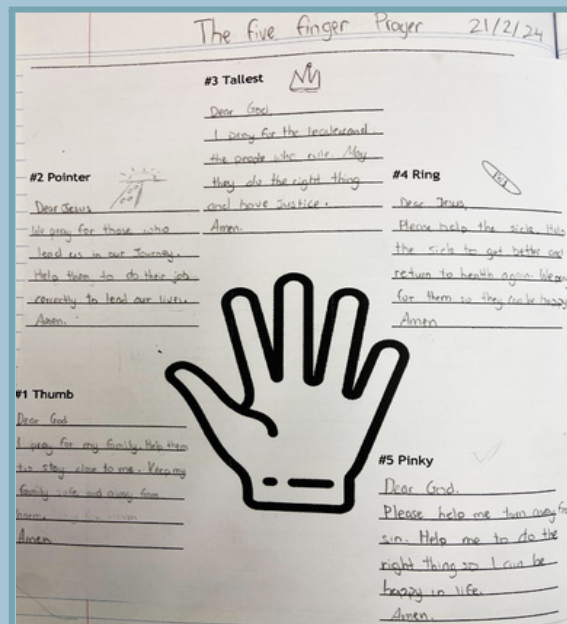 The five finger Prayer 21/2/24
#3 Tallest
Dear God,
I pray for the leaders and
the people who rule. May
they do the right thing
and have Justice.
Amen.
#2 Pointer
Dear Jesus
We pray for those who
lead us in our Journey.
Help them to do their job
correctly to lead our lives.
Amen.
#4 Ring
Dear Jesus,
Please help the sick. Help
the sick to get better and
return to health again. We pray
for them so they can be happy
Amen
#1 Thumb
Dear God
I pray for my family. Help them
to stay close to me. Keep my
family safe and away from
harm.
Amen
#5 Pinky
Dear God.
Please help me turn away from
sin. Help me to do the
right thing so I can be
happy in life.
Amen.